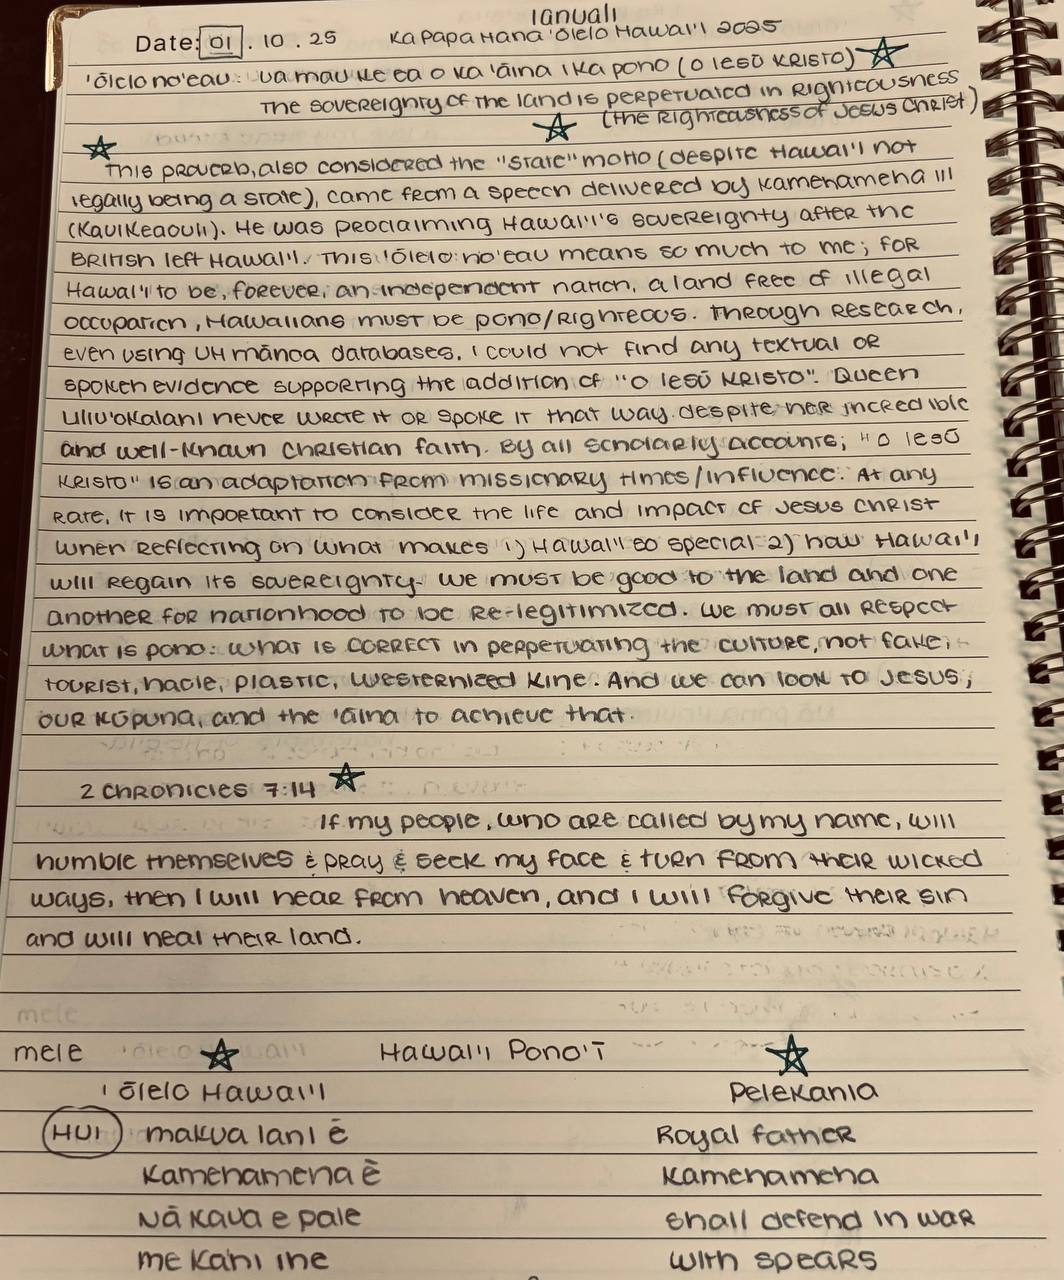 Ianuali
Date: 01 . 10 . 25 Ka Papa Hana ʻŌlelo Hawaiʻi 2025
ʻŌlelo noʻeau: Ua mau ke ea o ka ʻāina i ka pono (o Iesū Kristo)
The sovereignty of the land is perpetuated in Righteousness
(the Righteousness of Jesus Christ)
This proverb, also considered the "state" motto (despite Hawaiʻi not
legally being a state), came from a speech delivered by Kamehameha III
(Kauikeaouli). He was proclaiming Hawaiʻi's sovereignty after the
British left Hawaiʻi. This ʻōlelo noʻeau means so much to me; for
Hawaiʻi to be, forever, an independent nation, a land free of illegal
occupation, Hawaiians must be pono/righteous. Through research,
even using UH mānoa databases, I could not find any textual or
spoken evidence supporting the addition of "o Iesū Kristo". Queen
Liliʻuokalani never wrote it or spoke it that way despite her incredible
and well-known Christian faith. By all scholarly accounts, "o Iesū
Kristo" is an adaptation from missionary times/influence. At any
rate, it is important to consider the life and impact of Jesus Christ
when reflecting on what makes 1) Hawaiʻi so special 2) how Hawaiʻi
will regain its sovereignty. We must be good to the land and one
another for nationhood to be re-legitimized. We must all respect
what is pono: what is CORRECT in perpetuating the culture, not fake,
tourist, haole, plastic, westernized kine. And we can look to Jesus,
our kūpuna, and the ʻāina to achieve that.
2 Chronicles 7:14
If my people, who are called by my name, will
humble themselves & pray & seek my face & turn from their wicked
ways, then I will hear from heaven, and I will forgive their sin
and will heal their land.
mele
mele Hawaiʻi Ponoʻī
ʻōlelo Hawaiʻi Pelekania
HUI makua lani ē Royal father
Kamehameha ē Kamehameha
Nā kaua e pale shall defend in war
me ka ihe with spears